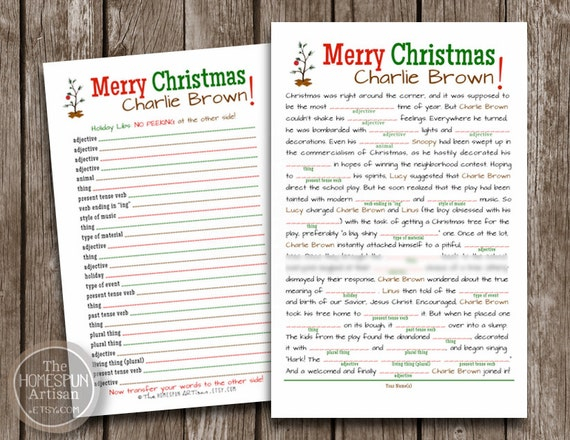 Merry Christmas
Charlie Brown!
Holiday Libs NO PEEKING at the other side!
adjective
adjective
adjective
adjective
animal
thing
present tense verb
verb ending in "ing"
style of music
thing
type of material
adjective
thing
adjective
holiday
type of event
present tense verb
past tense verb
thing
plural thing
plural thing
adjective
living thing (plural)
adjective
Now transfer your words to the other side!
© The HOMESPUN ARTisan.ETSY.COM
The
HOMESPUN
Artisan
.ETSY.COM
Merry Christmas
Charlie Brown!
Christmas was right around the corner, and it was supposed to
be the most time of year. But Charlie Brown
adjective
couldn't shake his feelings. Everywhere he turned,
adjective
he was bombarded with lights and
adjective adjective
decorations. Even his Snoopy had been swept up in
animal
the commercialism of Christmas, as he hastily decorated his
in hopes of winning the neighborhood contest. Hoping
thing
to his spirits, Lucy suggested that Charlie Brown
present tense verb
direct the school play. But he soon realized that the play had been
tainted with modern and music. So
verb ending in "ing" style of music
Lucy charged Charlie Brown and Linus (the boy obsessed with his
) with the task of getting a Christmas tree for the
thing
play, preferably "a big, shiny one. Once at the lot,
type of material
Charlie Brown instantly attached himself to a pitiful,
adjective
dismayed by their response, Charlie Brown wondered about the true
meaning of . Linus then told of the
holiday type of event
and birth of our Savior, Jesus Christ. Encouraged, Charlie Brown
took his tree home to it. But when he placed one
present tense verb
on its bough, it over into a slump.
thing past tense verb
The kids from the play found the abandoned decorated
thing
it with and and began singing
plural thing plural thing
"Hark! The
adjective living thing (plural)
And a welcomed and finally Charlie Brown joined in!
adjective
Your Name(s)